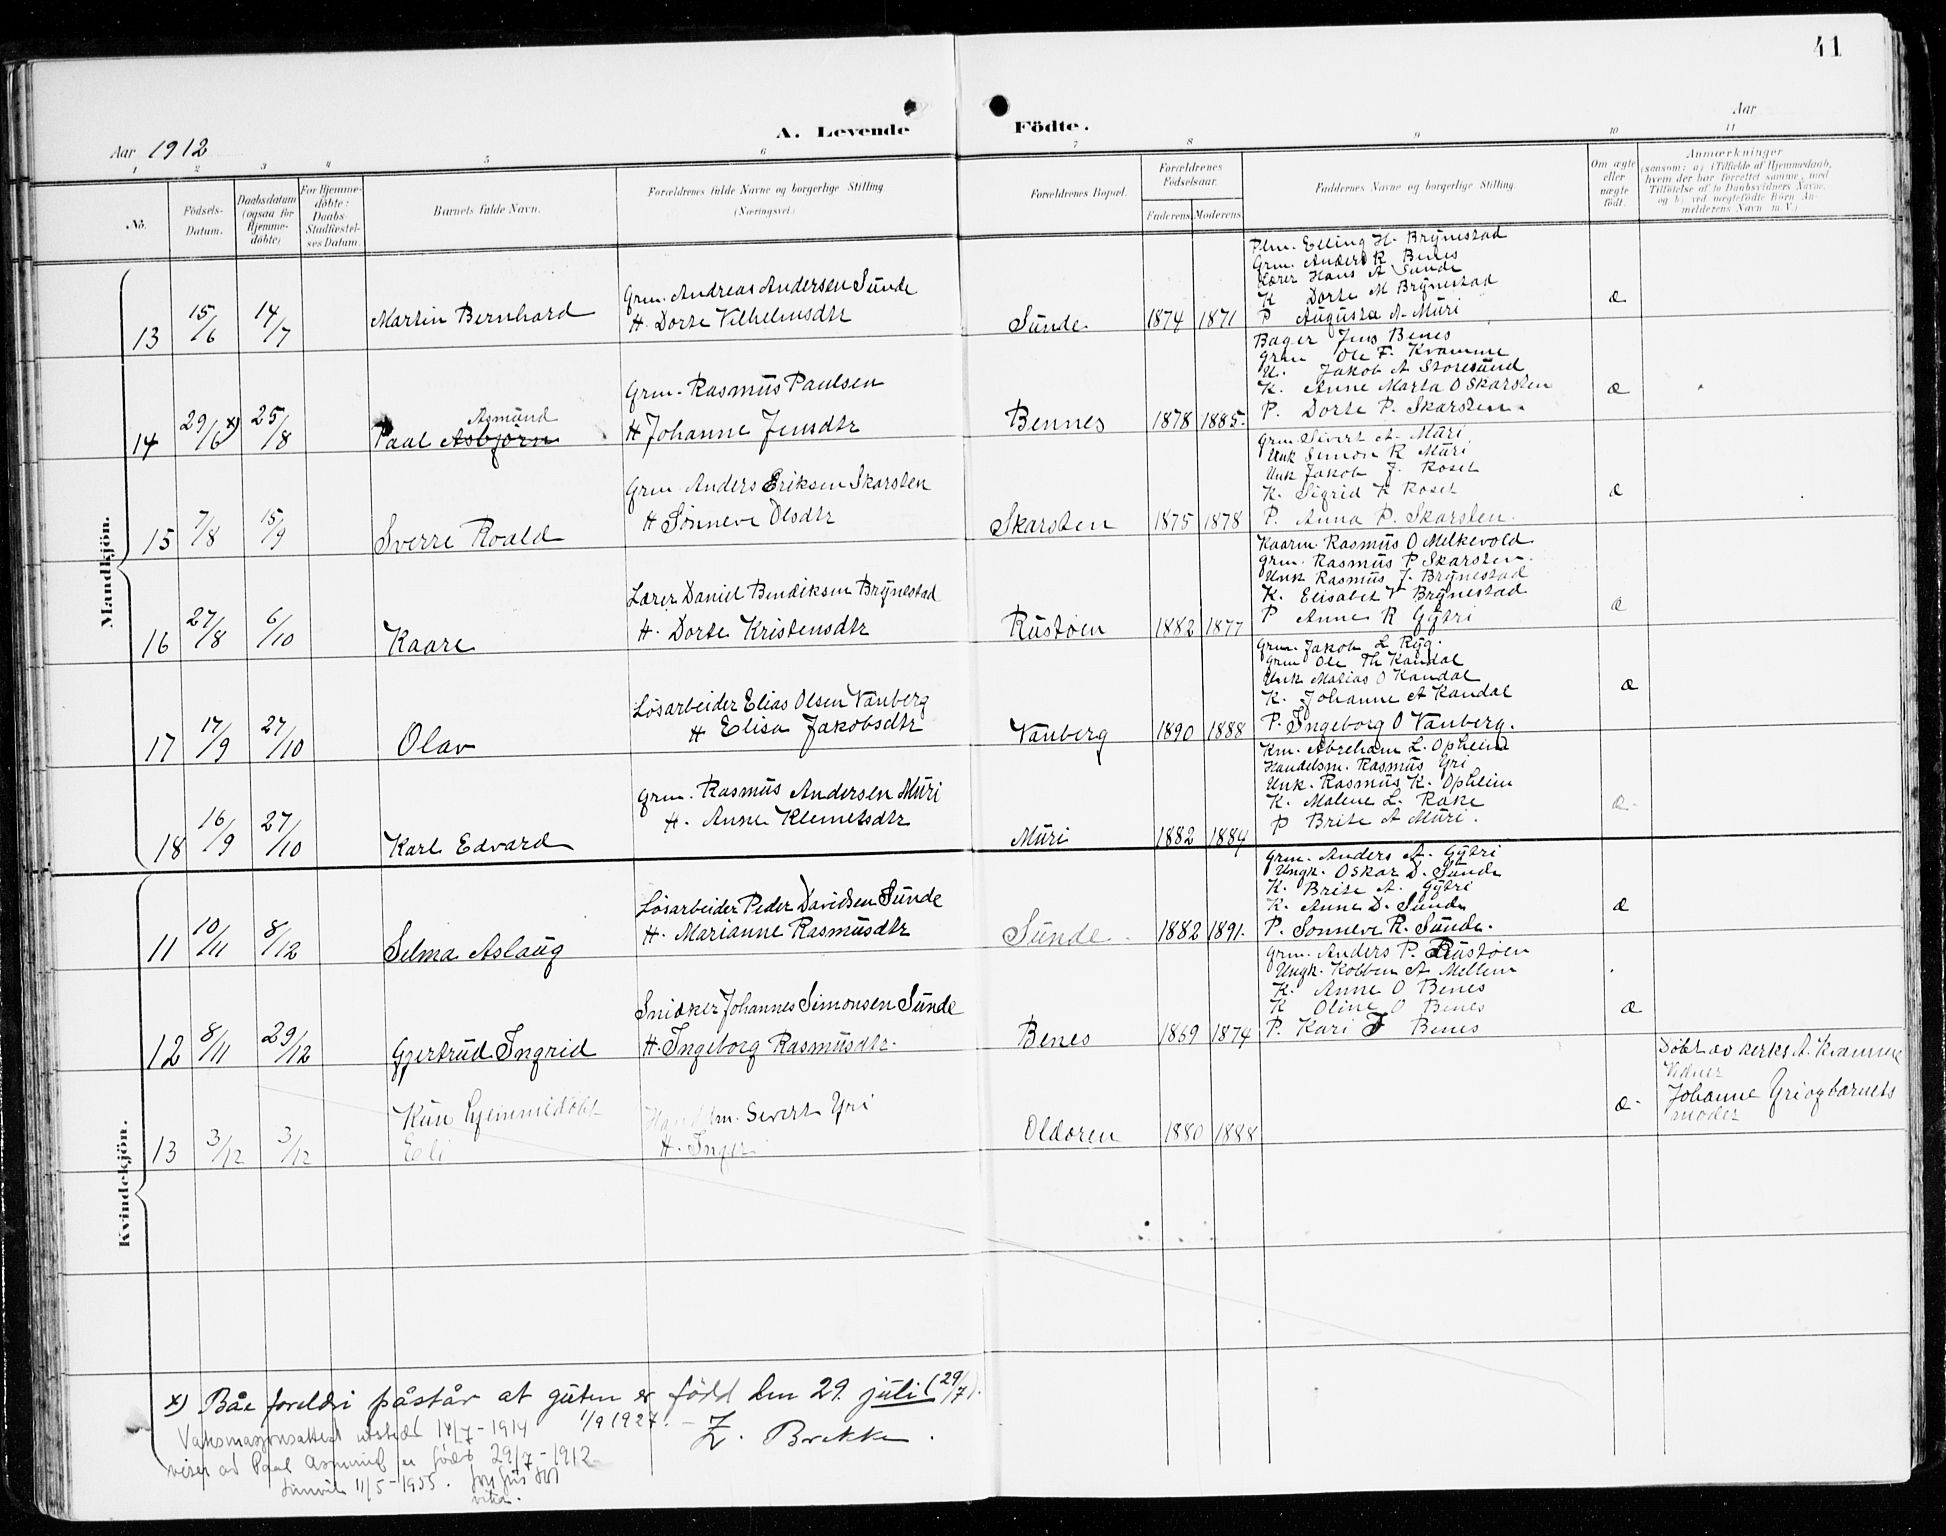 41
A. Levende Födte.
Aar 1912
Aar
1 2 3 4 5 6 7 8 9 10 11
No.
Födsels-Datum.
Daabsdatum (ogsaa for Hjemmedöbte)
For Hjemmedöbte: Daabs Stadfæstelses Datum.
Barnets fulde Navn.
Forældrenes fulde Navne og borgerlige Stilling
(Næringsvei)
Forældrenes Bopæl.
Forældrenes Födselsaar.
Faderens Moderens
Faddernes Navne og borgerlige Stilling.
Om ægte eller uægte födt.
Anmærkninger
(saasom: a) i Tilfælde af Hjemmedaab, hvem der har forrettet samme, med Tilföielse af to Daabsvidners Navne, og b) ved uægtefödte Börn Anmelderens Navn m. V.)
Mandkjön.
13 15/6 14/7 Martin Bernhard
Grm. Andreas Andersen Sunde
H. Dorte Vilhelmsdtr
Sunde 1874 1871
Plm. Elling H. Brynestad
Grm. Anders R Benes
Lærer Hans A Sunde
K Dorte M Brynestad
P Augusta A. Muri
æ
14 29/6 x) 25/8 Paal Asbjørn
Asmund
Grm. Rasmus Paulsen
H Johanne Jensdtr
Bennes 1878 1885.
Bager Jens Benes
Grm Ole F. Kvamme
U. Jakob A Storesund
K. Anne Marta O Skarsten
P. Dorte P. Skarsten.
æ
15 7/8 15/9 Sverre Roald
Grm Anders Eriksen Skarsten
H Sønneve Olsdtr
Skarsten 1875 1878
Grm Sivert A. Muri
Unk Simon R Muri
Unk Jakob J. Roset
K. Sigrid K Roset
P. Anna P. Skarsten.
æ
16 27/8 6/10 Kaare
Lærer Daniel Bendiksen Brynestad
H. Dorte Kristensdtr
Rustøen 1882 1877
Kaarm. Rasmus O Melkevold
Grm. Rasmus P Skarsten.
Unk Rasmus J. Brynestad
K. Elisabet V Brynestad
P Anne R Gytri
æ
17 17/9 27/10 Olav
Løsarbeider Elias Olsen Vanberg
H Elisa Jakobsdtr
Vanberg 1890 1888
Grm. Jakob L Ryg.
Grm Ole Th Kandal
Unk Matias O Kandal
K. Johanne A Kandal
P. Ingeborg O Vanberg.
æ
18 16/9 27/10 Karl Edvard
Grm. Rasmus Andersen Muri
H. Anne Klemetsdtr
Muri 1882 1884
Km. Abreham L. Opheim
Handelsm. Rasmus Yri
Unk. Rasmus K. Opheim
K. Malene L. Rake
P Brite A Muri.
æ
Kvindekjön.
11 10/11 8/12 Selma Aslaug
Løsarbeider Peder Davidsen Sunde
H. Marianne Rasmusdtr
Sunde 1882 1891.
Grm. Anders A. Gytri
Ungk. Oskar D. Sunde
K. Brite A. Gytri
K. Anne D. Sunde
P. Sonneve R. Sunde.
æ
12 8/11 29/12 Gjertrud Ingrid
Snidker Johannes Simonsen Sunde
H. Ingeborg Rasmusdtr.
Benes 1869 1874
Grm. Anders P. Rustøen
Ungk. Kolben A Mellem
K. Anne O Benes
K Oline O Benes
P. Kari J Benes
æ
13 3/12 3/12 Kun hjemmedøbt
Eli
Handelsm. Sivert Yri
H. Inger
Oldøren 1880 1888
æ
Døbt av kirks. A. Kvamme
Vidner
Johanne Yri og barnets
moder
x) Båe foreldri påstår at guten er född den 29. juli (29/7).
1/9 1927. - Z. Brekke.
Vaksinasjonsattest utstedt 14/7-1914
viser at Paal Asmund er født 29/7-1912
11/5-1955.